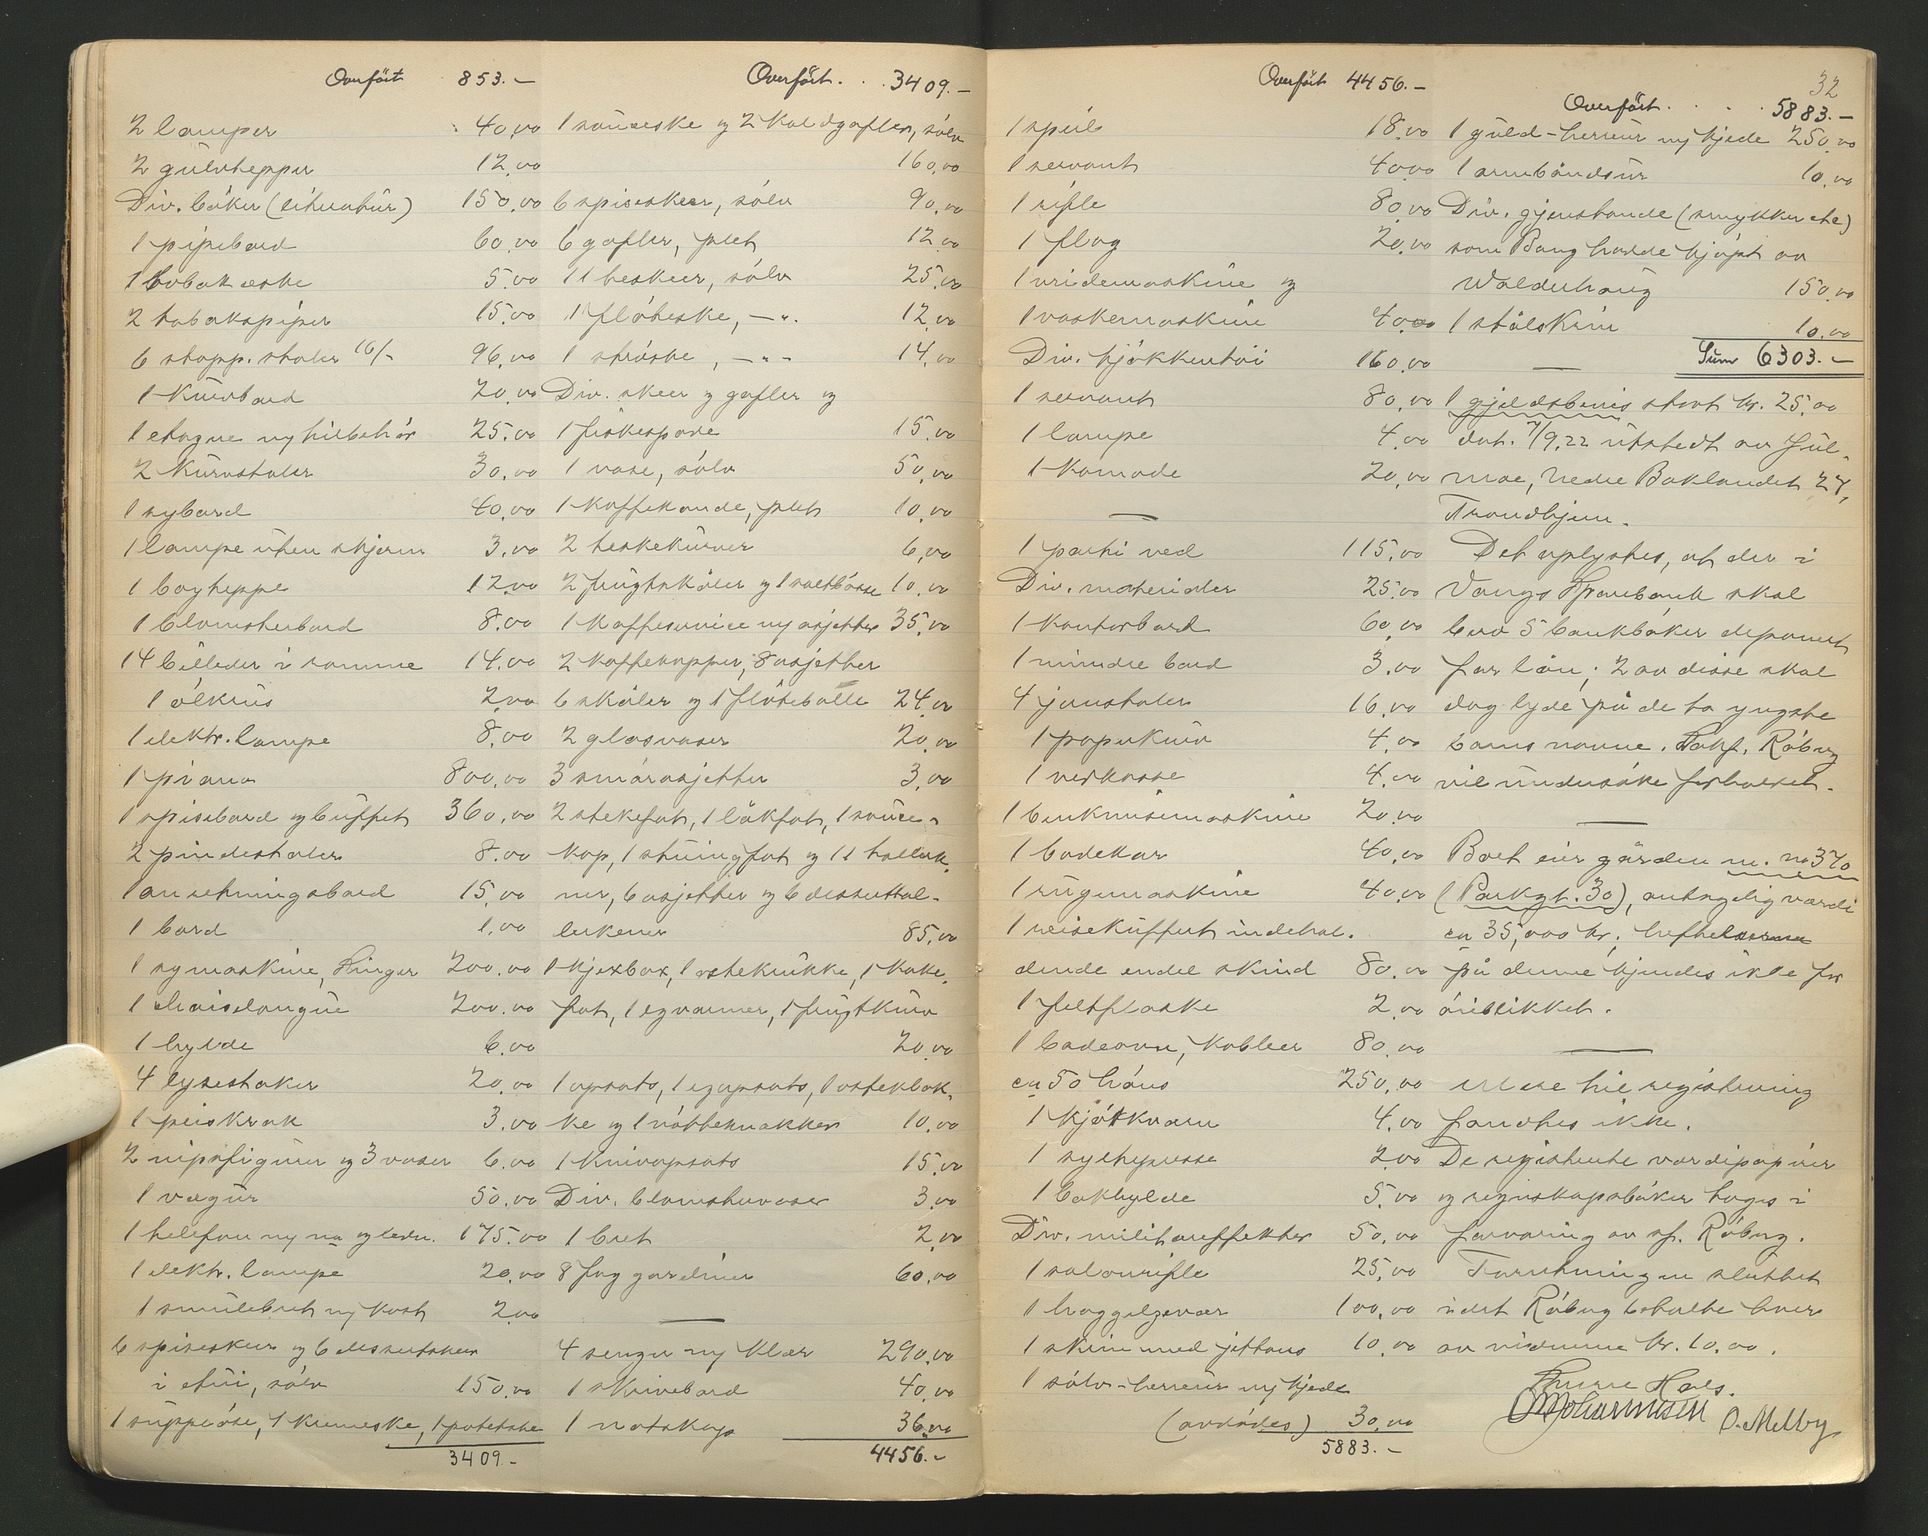 Overført 853.-
2 lamper 40,00
2 gulvtepper 12,00
Div. bøker (litteratur) 150,00
1 pipebord 60,00
1 tobakæske 5,00
2 tobakspiper 15,00
6 stopp. stoler 16/- 96,00
1 kurvbord 20,00
1 etagere m/ tilbehør 25,00
2 kurvstoler 30,00
1 sybord 40,00
1 lampe uten skjerm 3,00
1 boyteppe 12,00
1 blomsterbord 8,00
14 billeder i ramme 14,00
1 ølkrus 2,00
1 elektr. lampe 8,00
1 piano 800,00
1 spisebord og buffet 360,00
2 pindestoler 8,00
1 anretningsbord 15,00
1 bord 1,00
1 symaskine, Singer 200,00
1 chaiselongue 200,00
1 hylde 6,00
4 lysestaker 20,00
1 peiskrak 3,00
2 nipsfigurer og 3 vaser 6,00
1 vægur 50,00
1 telefon m/ no og ledn. 175,00
1 elektr. lampe 20,00
1 smulebret m/ kost 2,00
6 spiseskeer og 6 dessertskeer
i etui, sølv 150,00
1 suppeøse, 1 kremske, 1 potetske
3409.-
Overført . . 3409.-
1 sauseske og 2 koldgafler, sølv
160,00
6 spiseskeer, sølv 90,00
6 gafler, plet 12,00
11 teskeer, sølv 25,00
1 fløteske, -"- 12,00
1 strøske, -"- 14,00
Div. skeer og gafler og
1 fiskespade 15,00
1 vase, sølv 50,00
1 kaffekande, plet 10,00
2 teskekurver 6,00
2 frugtskåler og 1 saltbøsse 10,00
1 kaffeservice m/ asjetter 35,00
2 kaffekopper, 8 asjetter
6 skåler og 1 fløtebolle 24,00
2 glasvaser 20,00
3 småasjetter 3,00
2 stekefat, 1 løkfat, 1 sauce-
kop, 1 stuingfat og 11 tallerk.
ner, 6 asjetter og 6 desserttal-
lerkener 85,00
1 kjexbox, 1 osteklukke, 1 kake-
fat, 1 egvarmer, 1 frugtkurv
20,00
1 opsats, 1 egopsats, 1 ostebak-
ke og 1 nøtteknakker 10,00
1 knivopsats 15,00
Div. blomstervaser 3,00
1 bret 2,00
8 fag gardiner 60,00
4 senger m/ klær 290,00
1 skrivebord 40,00
1 matskap 36,00
4456.-
Overført 4456.-
1 speil 18,00
1 servant 40,00
1 rifle 80,00
1 flag 20,00
1 vridemaskine og
1 vaskemaskine 40,00
Div. kjøkkentøi 160,00
1 servant 80,00
1 lampe 4,00
1 komode 20,00
1 parti ved 115,00
Div. materialer 25,00
1 kontorbord 60,00
1 mindre bord 3,00
4 jernstoler 16,00
1 papirkurv 4,00
1 vedkasse 4,00
1 benknusemaskine 20,00
1 badekar 40,00
1 rugemaskine 40,00
1 reisekuffert indehol-
dende endel skind 80,00
1 feltflaske 2,00
1 badeovn, kobber 80,00
ca 50 høns 250,00
1 kjøtkvern 4,00
1 syltepresse 2,00
1 bokhylde 5,00
Div. militæreffekter 50,00
1 salonrifle 25,00
1 haggelgevær 100,00
1 skrin med jettons 10,00
1 sølv-herreur m/ kjede
(avdødes) 30,00
5883.-
32
Overført . . . 5883.-
1 guld-herreur m/ kjede 250,00
1 armbåndsur 10,00
Div. gjenstande (smykker etc)
som Bang hadde kjøpt av
Walderhaug 150,00
1 stålskrin 10,00
Sum 6303.-
1 gjeldsbevis stort kr. 25,00
dat. 7/9.22 utstedt av Jul.
Moe, Nedre Baklandet 27,
Trondhjem.
Det oplystes, at der i
Vangs Sparebank skal
bero 5 bankbøker deponert
for lån; 2 av disse skal
dog lyde på de to yngste
barns navne. Sakf. Røberg
vil undersøke forholdet.
Boet eier gården m. no 370
(Parkgt. 30), antagelig værdi
ca 35,000 kr. heftelserne
på denne kjendes ikke for
øieblikket.
Mere til registrering
fandtes ikke.
De registrerte værdipapirer
og regnskapsbøker tages i
forvaring av sf. Røberg.
Forretningen sluttet
idet Røberg betalte hver
av vidnerne kr. 10,00.
O. Johannessen O. Melby